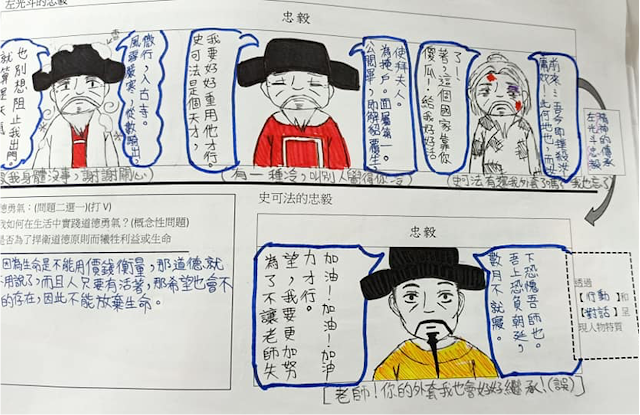 左光斗的忠毅
忠毅
微行,入古寺。
風雪嚴寒,從數騎出,
也別想阻止我出門。
就算是天
使拜夫人。
為掩戶。面署第一。
公閱畢,即解貂覆生
我要好好重用他才行。
史可法是個天才,
前來…
了!
著,這個國家靠你
傻瓜!給我好好活
我身體沒事,謝謝關心)
(有一種冷,叫別人覺得你冷)
精神的傳承
左光斗忠毅
史可法的忠毅
忠毅
下恐愧吾師也。
吾上恐負朝廷,
數月不就寢。
加油!加油!加油
力才行。
望,我要更加努
為了不讓老師失
[老師!你的外套我也會好好繼承!(誤)]
透過
【行動】和
【對話】呈
現人物特質
德勇氣:(問題二選一)(打 V)
我如何在生活中實踐道德勇氣?(概念性問題)
是否為了捍衛道德原則而犧牲利益或生命
因為生命是不能用價錢衡量,那道德就
不用說了,而且人只要有活著,那希望也會不
的存在,因此不能放棄生命。